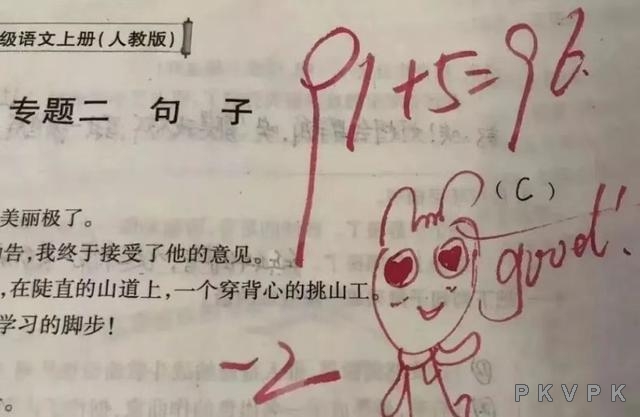 级语文上册(人教版)
91+5=96.
专题二 句 子
(C)
美丽极了。
good!
告,我终于接受了他的意见。
,在陡直的山道上,一个穿背心的挑山工。
学习的脚步!
-2
PKVPK